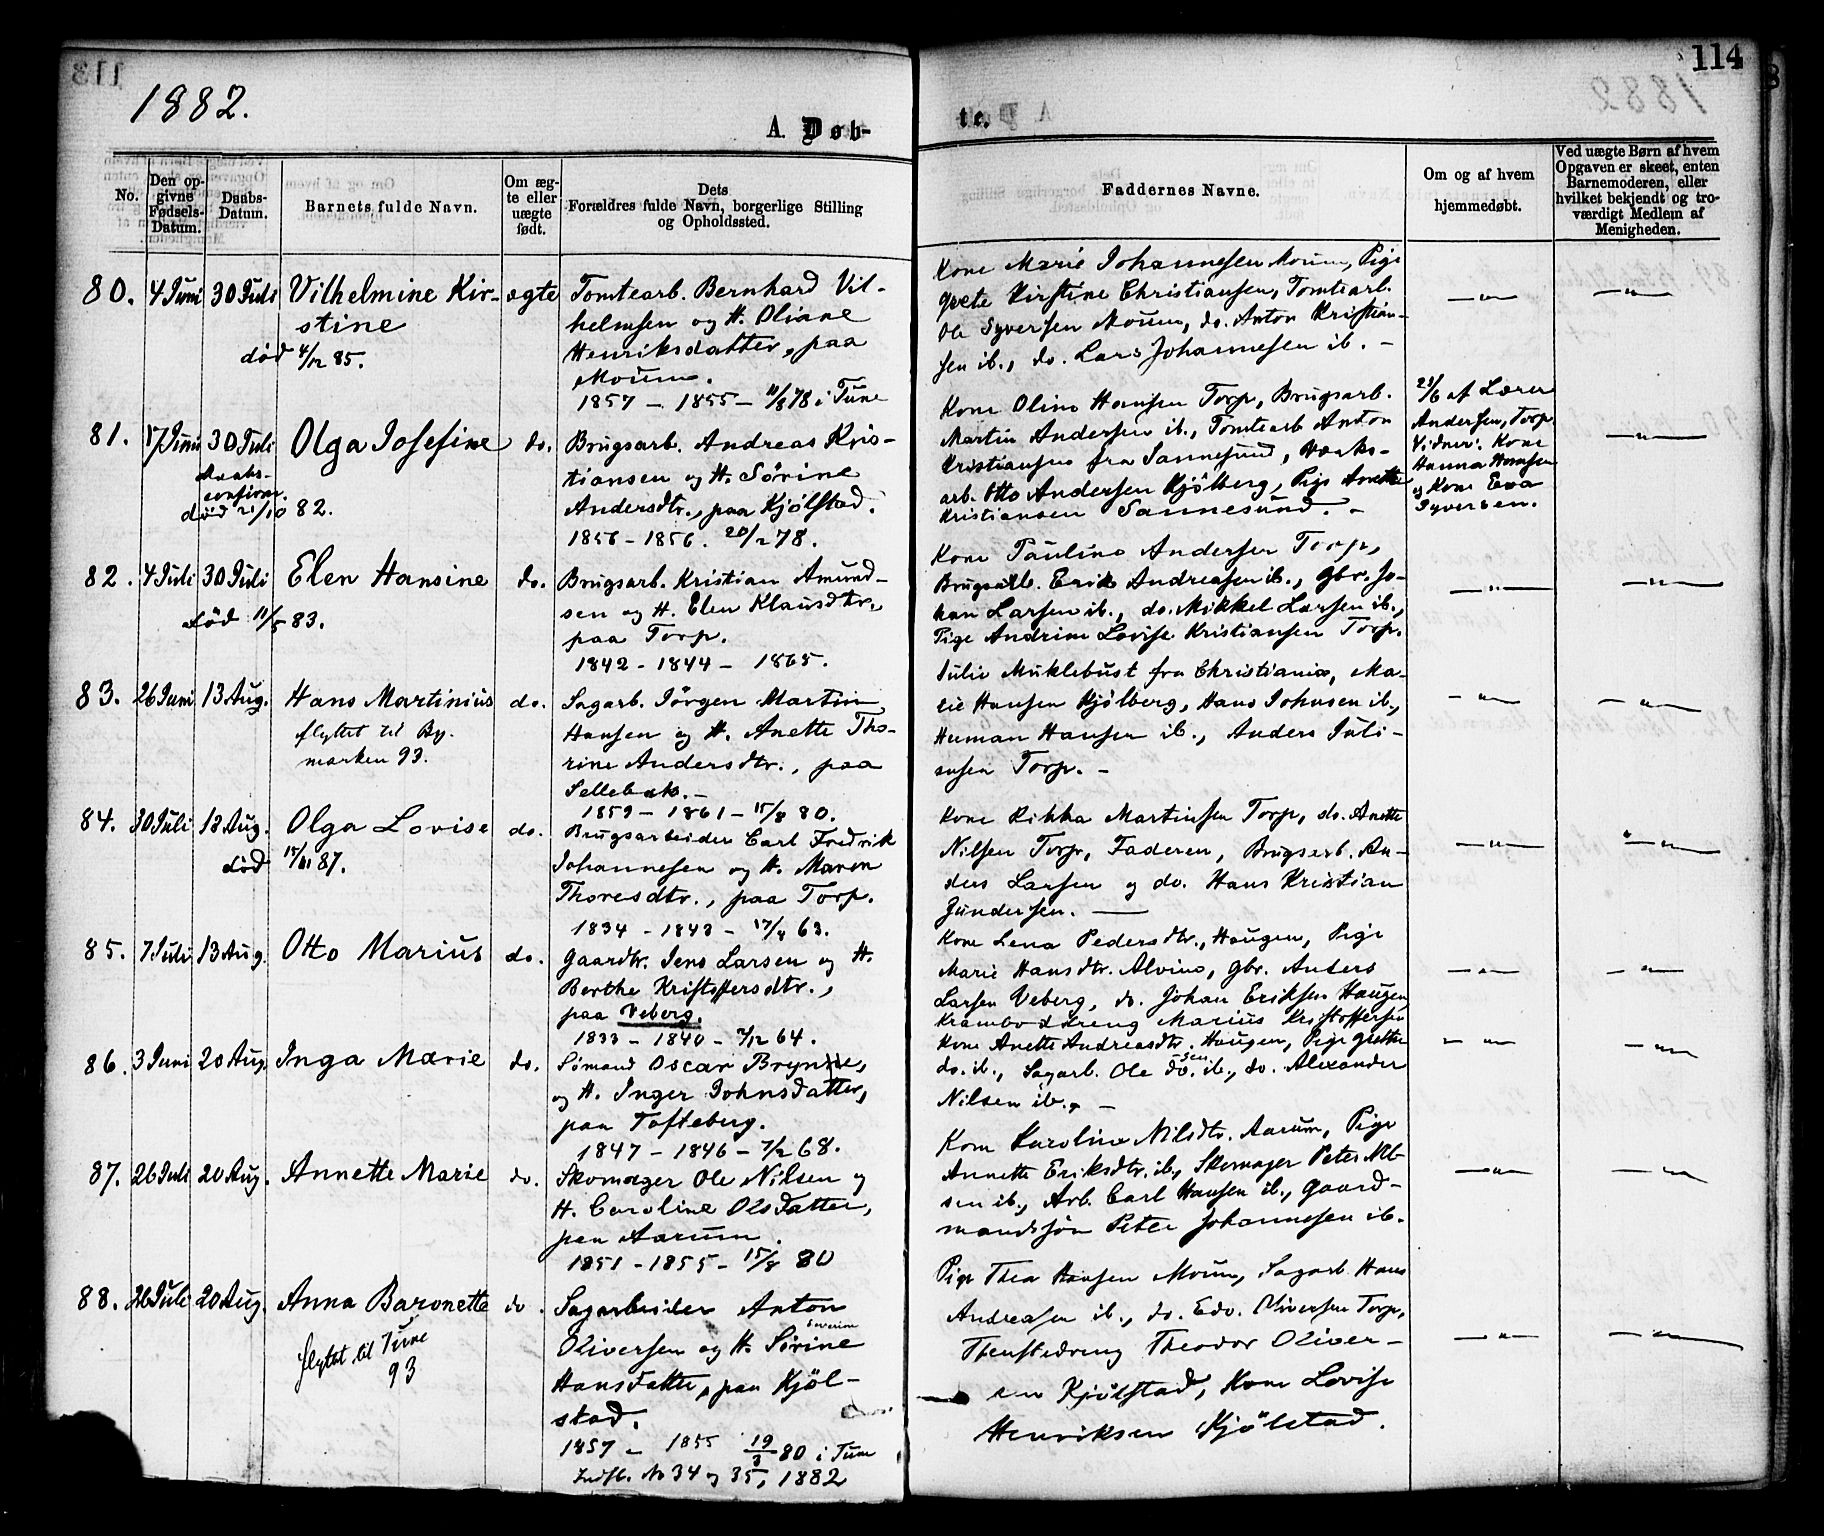 114
1882.
A. Døb-
te.
No.
Den op-
givne
Fødsels-
Datum.
Daabs-
Datum.
Barnets fulde Navn.
Om æg-
te eller
uægte
født.
Dets
Forældres fulde Navn, borgerlige Stilling
og Opholdssted.
Faddernes Navne.
Om og af hvem
hjemmedøbt.
Ved uægte Børn af hvem
Opgaven er skeet, enten
Barnemoderen, eller
hvilket bekjendt og tro-
værdigt Medlem af
Menigheden.
80. 4 Juni 30 Juli Vilhelmine Kir-
stine
død 4/12 85.
ægte
Tomtearb. Bernhard Vil-
helmsen og H. Oliane
Henriksdatter, paa
Moum.
1857 - 1855 - 11/8 78 i Tune
Kone Marie Johannesen Moum, Pige
Grete Kirstine Christiansen, Tomtearb.
Ole Syversen Moum, do. Anton Kristian-
sen ib., do. Lars Johannesen ib. -
— " —
— " —
81. 17 Juni 30 Juli Olga Josefine
Daabs-
confirm.
død 21/10 82.
do.
Brugsarb. Andreas Kris-
tiansen og H. Sørine
Andersdtr., paa Kjølstad.
1856 - 1856. 20/12 78.
Kone Oline Hansen Torp, Brugsarb.
Martin Andersen ib., Tomtearb Anton
Kristiansen fra Sannesund,
arb. Otto Andersen Kjølberg, Pige Anette
Kristiansen Sannesund. -
23/6 af Lærer
Andersen, Torp
Vidner: Kone
Hanna Hansen
og Kone Eva
Syversen.
— " —
82. 4 Juli 30 Juli Elen Hansine
død 11/5 83.
do.
Brugsarb. Kristian Amund-
sen og H. Elen Klausdtr.,
paa Torp.
1842 - 1844 - 1865.
Kone Pauline Andersen Torp,
Brugsarb. Erik Andreasen ib., Gbr. Jo-
han Larsen ib., do. Mikkel Larsen ib.,
Pige Andrine Lovise Kristiansen Torp.
— " —
— " —
83. 26 Juni 13 Aug. Hans Martinius
flyttet til By-
marken 93.
do.
Sagarb. Jørgen Martin
Hansen og H. Anette Tho-
rine Andersdtr., paa
Sellebak. -
1859 - 1861 - 15/8 80.
Julie Muklebust fra Christiania, Ma-
rie Hansen Kjølberg, Hans Johnsen ib.,
Herman Hansen ib., Anders Juli-
ussen Torp. -
— " —
— " —
84. 30 Juli 18 Aug. Olga Lovise
død 15/11 87.
do.
Brugsarbeider Carl Fredrik
Johannesen og H. Maren
Thoresdtr., paa Torp.
1834 - 1843 - 17/4 63.
Kone Rikka Martinsen Torp, do. Anette
Nilsen Torp, Faderen, Brugsarb. An-
ders Larsen og do. Hans Kristian
Gundersen. —
— " —
— " —
85. 7 Juli 13 Aug. Otto Marius
do.
Gaardbr. Jens Larsen og H.
Berthe Kristoffersdtr.,
paa Veberg.
1833 - 1840 - 7/12 64.
Kone Lena Pedersdtr., Haugen, Pige
Marie Hansdtr. Alvim, Gbr. Anders
Larsen Veberg, do. Johan Eriksen Haugen
Kramboddreng Marius Kristoffersen
— " —
— " —
86. 3 Juni 20 Aug. Inga Marie
do.
Sømand Oscar Brynne,
og H. Inger Johnsdatter,
paa Tofteberg.
1847 - 1846 - 7/2 68.
Kone Anette Andreasdtr. Haugen, Pige Grethe
do. ib., Sagarb. Ole do. sen ib., do. Alexander
Nilsen ib. -
— " —
— " —
87. 26 Juli 20 Aug. Annette Marie
do.
Skomager Ole Nilsen og
H. Caroline Olsdatter,
paa Aarum.
1851 - 1855 - 15/8 80
Kone Karoline Nilsdtr. Aarum, Pige
Annette Eriksdtr. ib., Skomager Peter Nil-
sen ib., Arb. Carl Hansen ib., Gaard-
mandsøn Peter Johannesen ib.
— " —
— " —
88. 26 Juli 20 Aug. Anna Baronette
flyttet til Tune
93
do.
Sagarbeider Anton
Severine
Oliversen og H. Sørine
Hansdatter, paa Kjøl-
stad.
1857 - 1855 19/3 80 i Tune
Indfl. No 34 og 35, 1882
Pige Thea Hansen Moum, Sagarb. Hans
Andreasen ib., do. Edv. Oliversen Torp,
Tjenstedreng Theodor Oliver-
en Kjølstad, Kone Lovise
Henriksen Kjølstad.
— " —
— " —